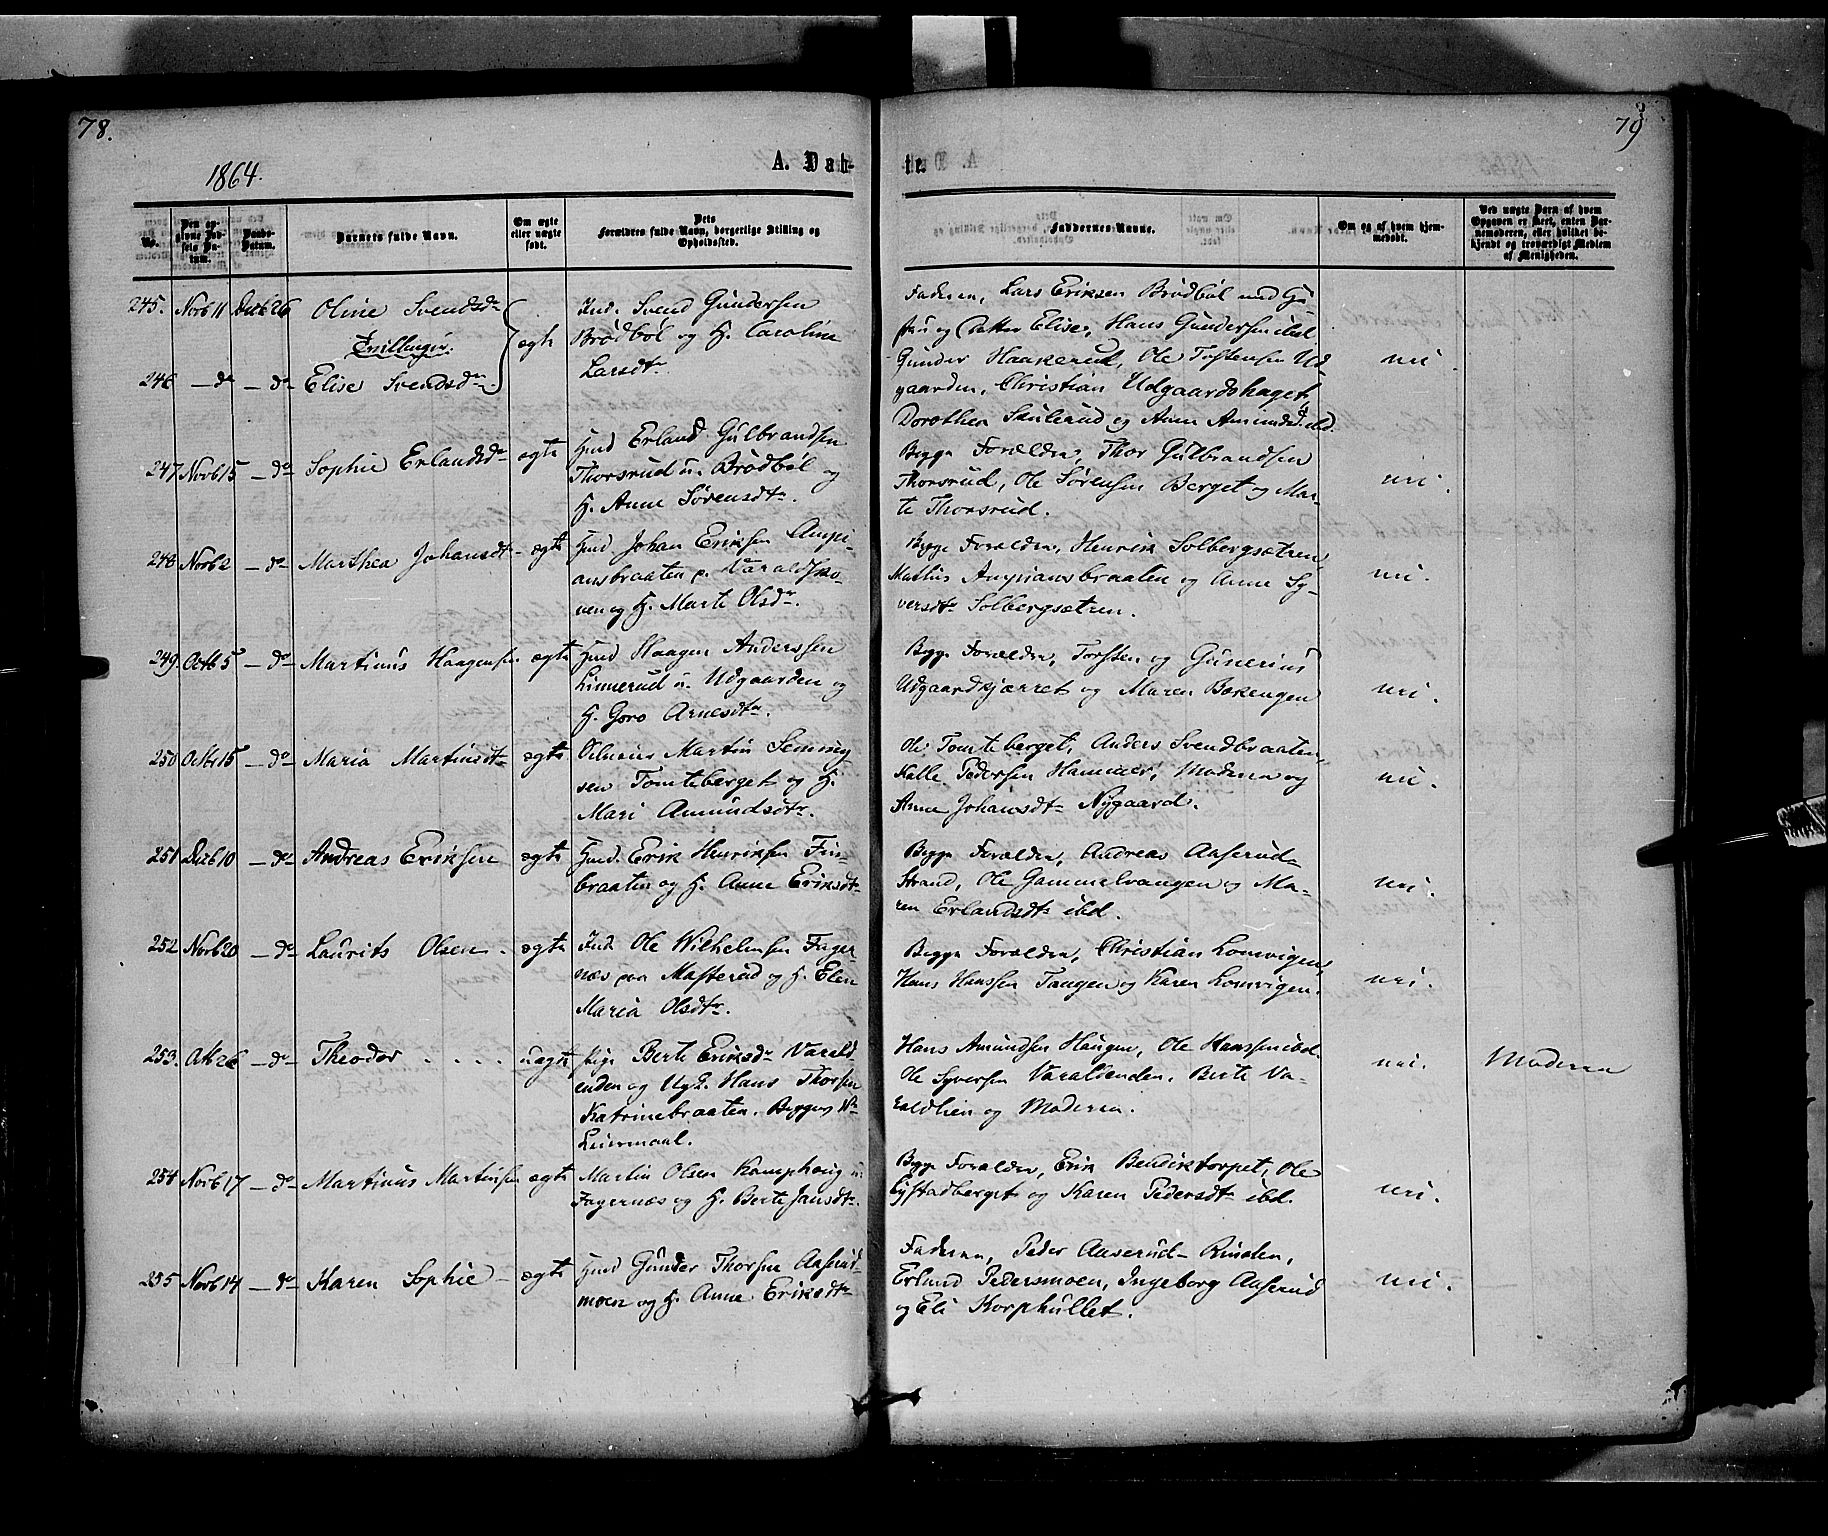 78.
79
1864.
A. Dab-
te.
No.
Den opgivne Fødsels Datum.
Daabs-Datum.
Barnets fulde Navn.
Om ægte eller uægte født.
Dets Forældres fulde Navn, borgerlige Stilling og Opholdssted.
Faddernes Navne.
Om og af hvem hjemmedøbt.
Ved uægte Barn af hvem Opgaven er skeet, enten Barnemoderen, eller hvilket bekjendt og troværdigt Medlem af Menigheden.
245. Novb 11 Decb 26 Oline Svendsdr
Tvillinger.
246 — do — do Elise Svendsdr
ægte
Ind. Svend Gundersen
Brødbøl og H. Caroline
Larsdtr
Faderen, Lars Eriksen Brødbøl med
og Datter Elise, Hans Gundersen ibd.
Gunder Haakerud, Ole Torstensen Ud-
gaarden, Christian Udgaardshaget,
Dorothea Skulerud og Anne Amundsd ibd.
nei
247 Novb 15 — do Sophie Erlandsdr ægte
Hmd Erland Gulbrandsen
Thorsrud u. Brødbøl og
H. Anne Sørensdtr.
Begge Forældre, Thor Gulbrandsen
Thorsrud, Ole Sørensen Berget og Mar-
te Thorsrud.
nei.
248 Novb 2 — do Marthea Johansdtr ægte
Hmd Johan Eriksen Ampi-
ansbraaten p. Varaldsko-
ven og H. Marte Olsdr.
Begge Forældre, Henrik Solbergsætren,
Mathis Ampiansbraaten og Anne Sy-
versdtr Solbergsætren.
nei.
249. Octb 5 — do Martinus Haagensen ægte
Hmd Haagen Anderssen
Linnerud u. Udgaarden og
H. Goro Arnesdtr.
Begge Forældre, Torsten og Gunerius
Udgaardkjærret og Maren Bekengen
nei.
250 Octb 15 — do Maria Martinsdtr ægte
Martin Semming-
sen Tomteberget og H.
Mari Amundsdtr.
Ole Tomteberget, Anders Svendbraaten,
Kalle Pedersen Hammer, Moderen og
Anne Johansdtr Nygaard.
nei.
251 Decb 10 — do Andreas Eriksen ægte
Hmd. Erik Henriksen Fin-
braaten og H. Anne Eriksdtr
Begge Forældre, Andreas Aaserud-
Strand, Ole Gammelvangen og Ma-
ren Erlandsdtr ibd.
nei.
252 Novb 20 — do Laurits Olsen ægte
Ind. Ole Wilhelmsen Fager-
næs paa Masterud og H. Elen
Maria Olsdtr.
Begge Forældre, Christian Lomvigen,
Hans Hanssen Tangen og Karen Lomvigen.
nei.
253. Octb 26 — do Theodor . . . . uægte
Pige Berte Eriksdr Varald-
enden og Ugk. Hans Thorsen
Katrinebraaten. Begges 1ste
Leiermaal.
Hans Amundsen Haugen, Ole Hanssen ibd.
Ole Syversen Varaldenden, Berte Va-
raldlien og Moderen.
nei.
Moderen
254 Novb 17 — do Martinus Martinsen ægte
Martin Olsen Kamphaug u.
Fagernæs og H. Berte Jansdtr.
Begge Forældre, Erik Bendiktorpet, Ole
Eystadberget og Karen Pedersdtr ibd.
nei.
255 Novb 14 — do Karen Sophie ægte
Hmd Gunder Thorsen Aaserud-
moen og H. Anne Eriksdtr
Faderen, Peder Aaserud-Rinden,
Erland Pedersmoen, Ingeborg Aaserud
og Eli Korphullet.
nei.